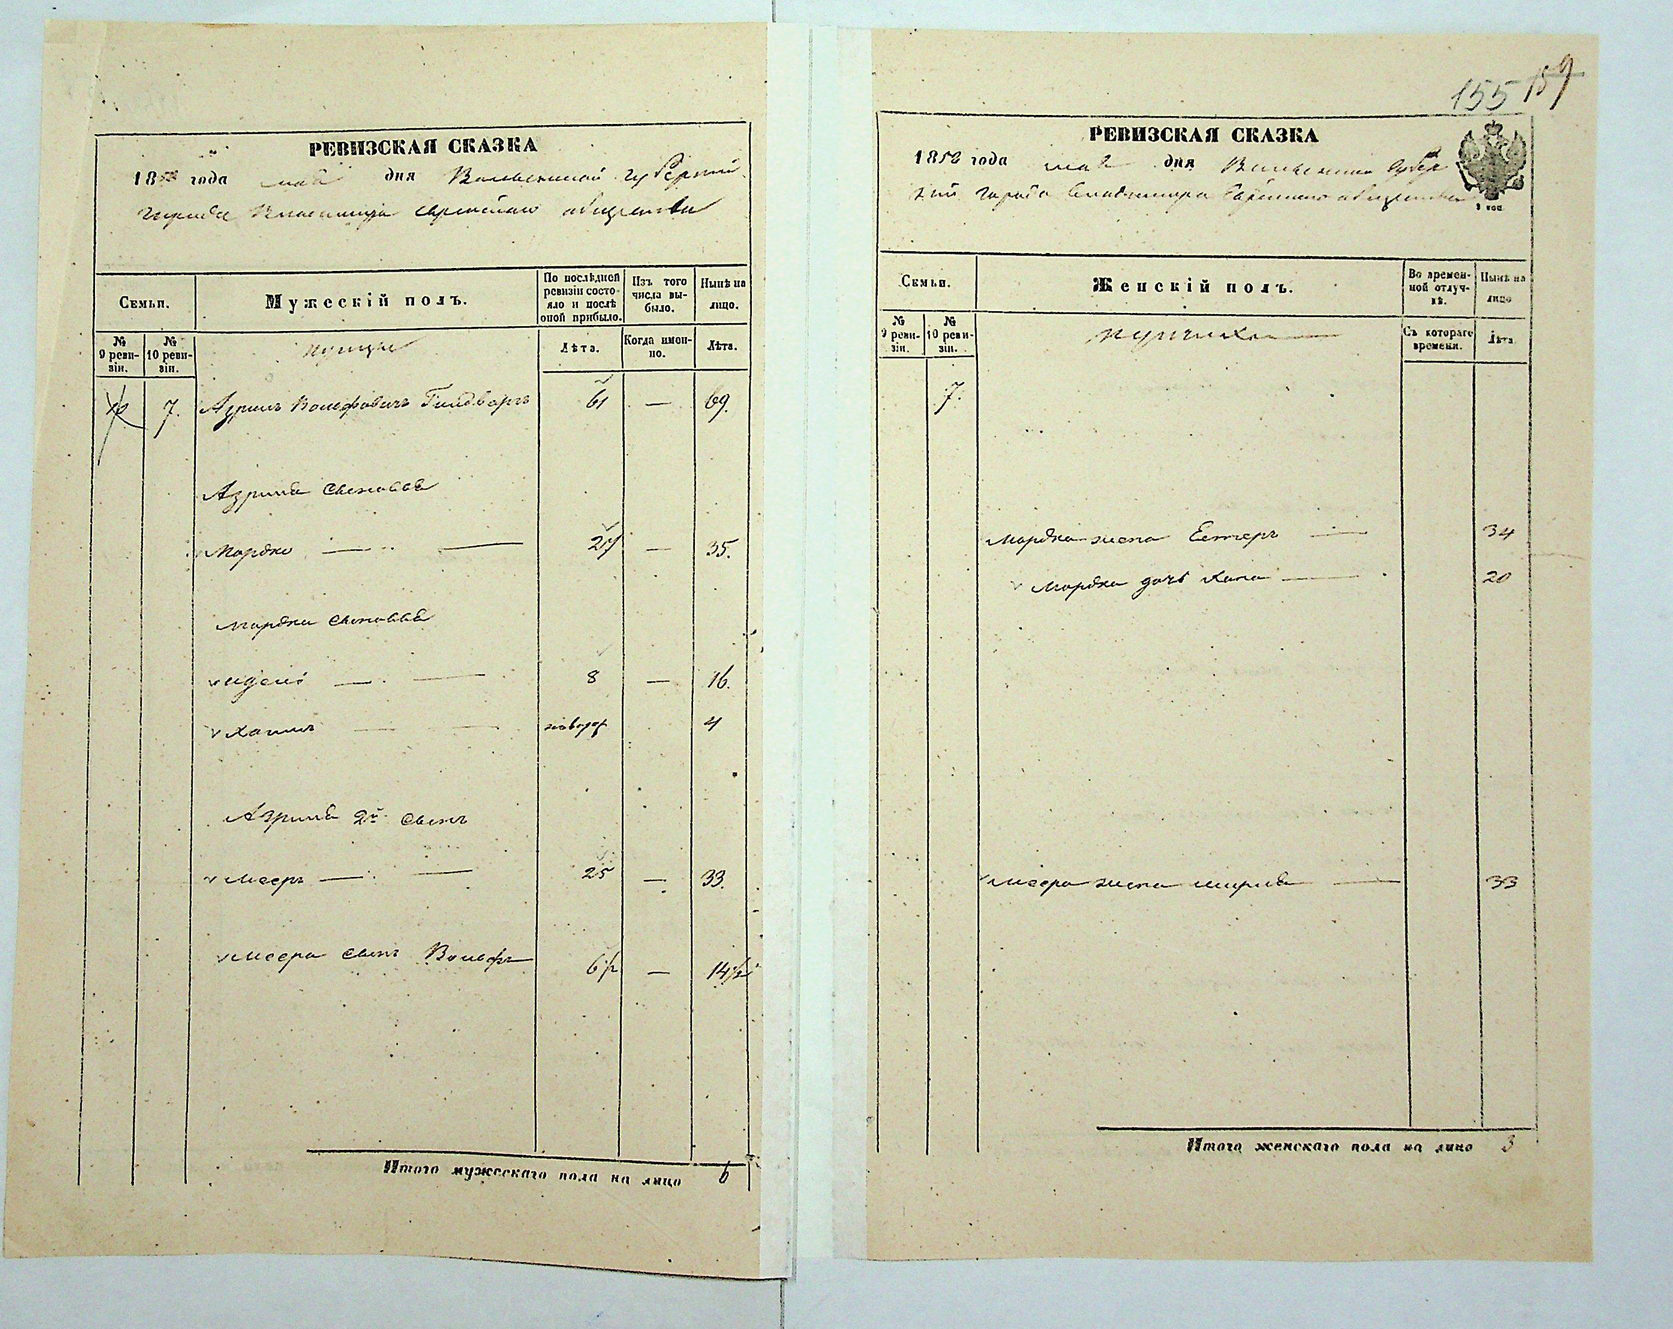 РЕВИЗСКАЯ СКАЗКА
1858 года мая дня Волынской губернии
города Владимира еврейского общества
Семьи.
Мужескій полъ.
По послѣдней ревизіи состояло и послѣ оной прибыло.
Изъ того числа выбыло.
Нынѣ на лицо.
№ 9 ревизіи.
№ 10 ревизіи.
купцы
Лѣта.
Когда именно.
Лѣта.
7. Азрилъ Вольфовичъ 61 — 69.
Азриля сыновья
Мордко — 27 — 35.
Мордка сыновья
8 — 16.
Хаимъ — новорож 4
Азриля 2й сынъ
Мееръ — 25 — 33.
Меера сынъ Вольфъ 6½ — 14½
Итого мужескаго пола на лицо 6
155 159
РЕВИЗСКАЯ СКАЗКА
1858 года мая дня Волынской губер
ніи города Владимира Еврейского общества
Семьи.
Женскій полъ.
Во временной отлучкѣ.
Нынѣ на лицо
№ 9 ревизіи.
№ 10 ревизіи.
Съ котораго времени.
Лѣта.
7.
Мордка жена Естеръ — 34
Мордка дочь Хана — 20
Меера жена — 33
Итого женскаго пола на лицо 3